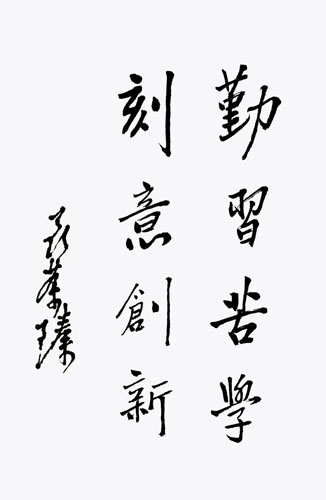 勤習苦學
刻意創新
聶荣臻